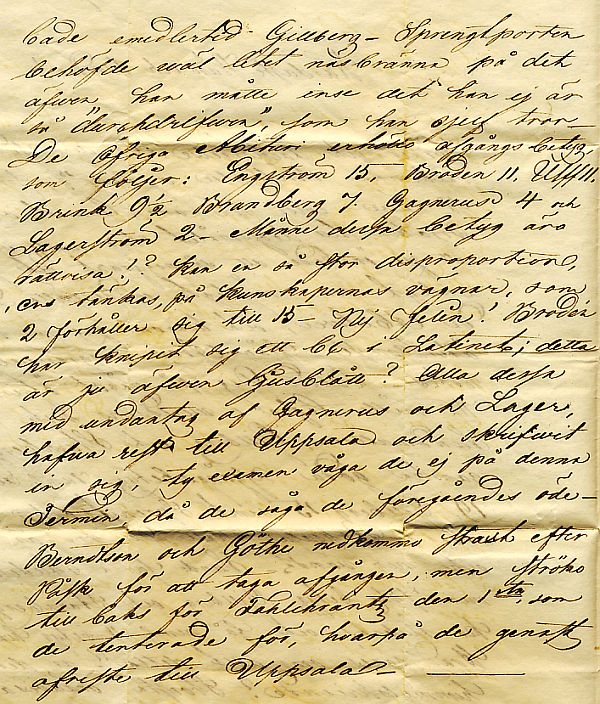 både emedlertid Gillberg – Sprengtporten
behöfde wäl litet näsbränna på det
äfwen, han måtte inse det han ej är
så "durchdrifwen", som han sjelf tror –
De öfrige Abituri erhöllo afgångs betyg
som följer: Engström 15, Brodén 11, Ulff 11,
Brink 9½ Brandberg 7, Gagnerus 4 och
Lagerström 2 – Månne dessa betyg äro
rättvisa!? kan en så stor disproportion,
ens tänkas, på kunskapernas vägnar, som
2 förhåller sig till 15 – Nej felån! Brodén
har knipit sig ett bc i Latinet; detta
är ju äfwen ljusblått? Alla dessa
med undantag af Gagnerus och Lager,
hafwa rest till Uppsala och skrifwit
in sig, ty examen våga de ej på denna
Termin, då de såga de föregåendes öde –
Berndtson och Göthe nedkommo strax efter
Påsk för att taga afgången, men ströko
till baks för Fahlchrantz den 1sta, som
de tenterade för, hvarpå de genast
afreste till Uppsala –